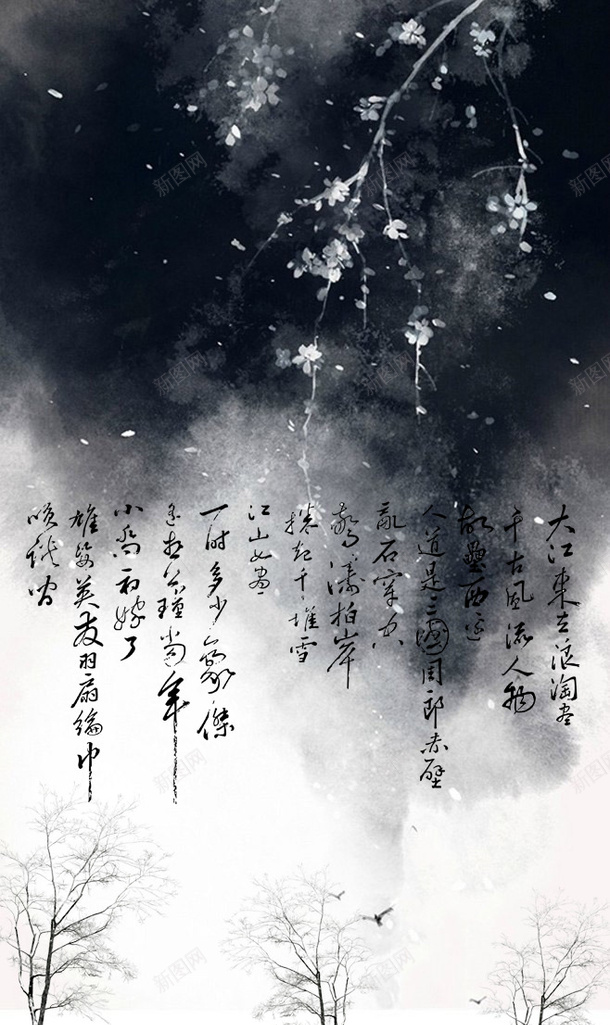 大江東去浪淘盡
千古風流人物
故壘西邊
人道是三國周郎赤壁
亂石穿空
驚濤拍岸
捲起千堆雪
江山如畫
一時多少豪傑
遙想公瑾當年
小喬初嫁了
雄姿英发羽扇綸巾
咲談間
新图网